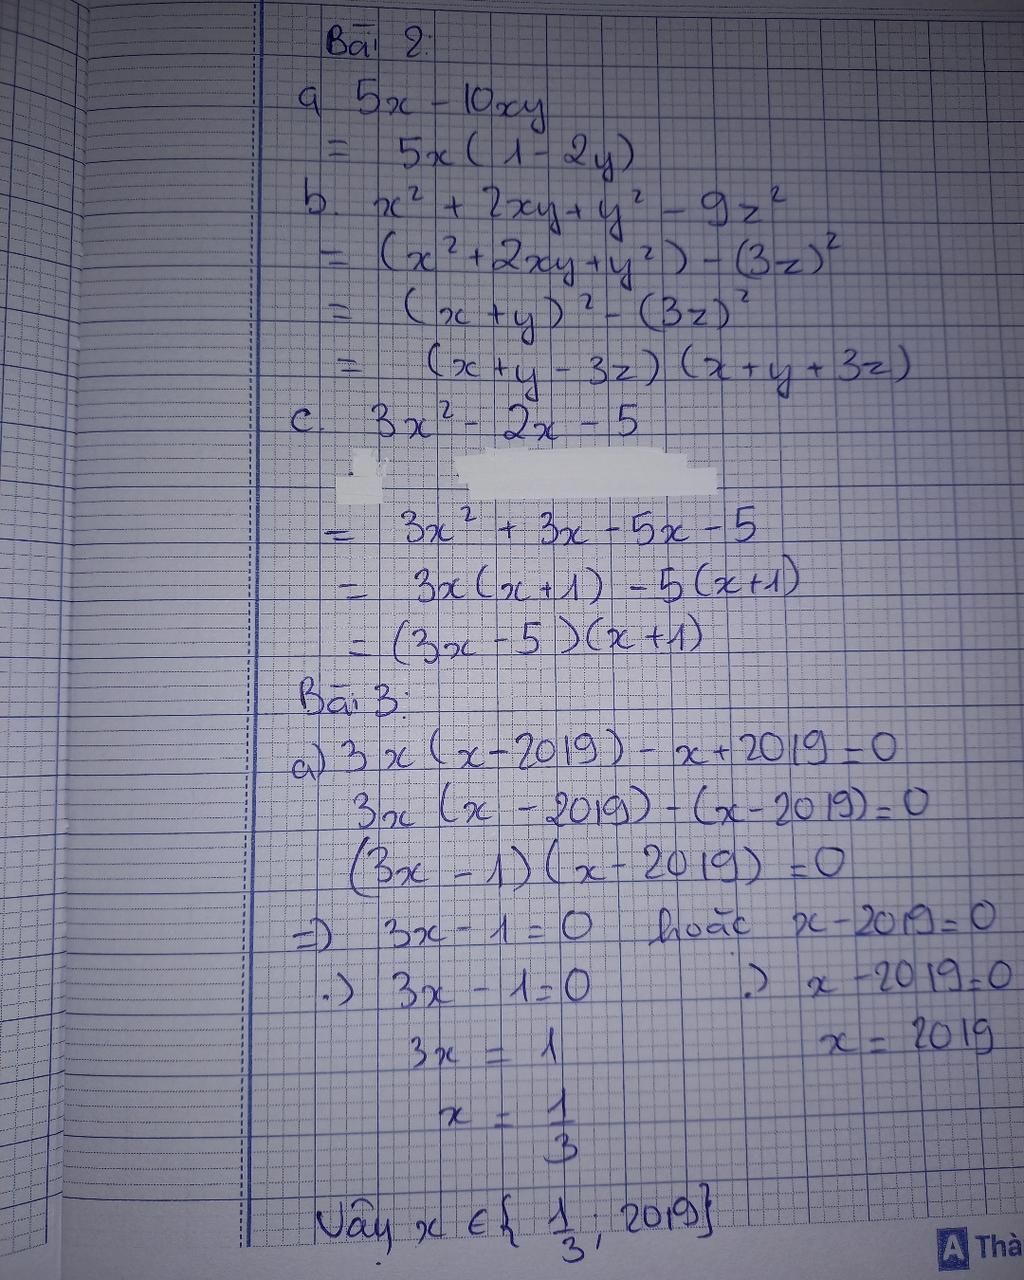 Bài 2:
a 5x - 10xy
= 5x(1 - 2y)
b. x² + 2xy + y² - 9z²
= (x² + 2xy + y²) - (3z)²
= (x + y)² - (3z)²
= (x + y - 3z) (x + y + 3z)
c. 3x² - 2x - 5
= 3x² + 3x - 5x - 5
= 3x(x + 1) - 5(x + 1)
= (3x - 5)(x + 1)
Bài 3:
a) 3x(x - 2019) - x + 2019 = 0
3x (x - 2019) - (x - 2019) = 0
(3x - 1)(x - 2019) = 0
=> 3x - 1 = 0 hoặc x - 2019 = 0
.) 3x - 1 = 0 .) x - 2019 = 0
3x = 1 x = 2019
x = 1/3
Vậy x ∈ { 1/3 ; 2019}
A Thà